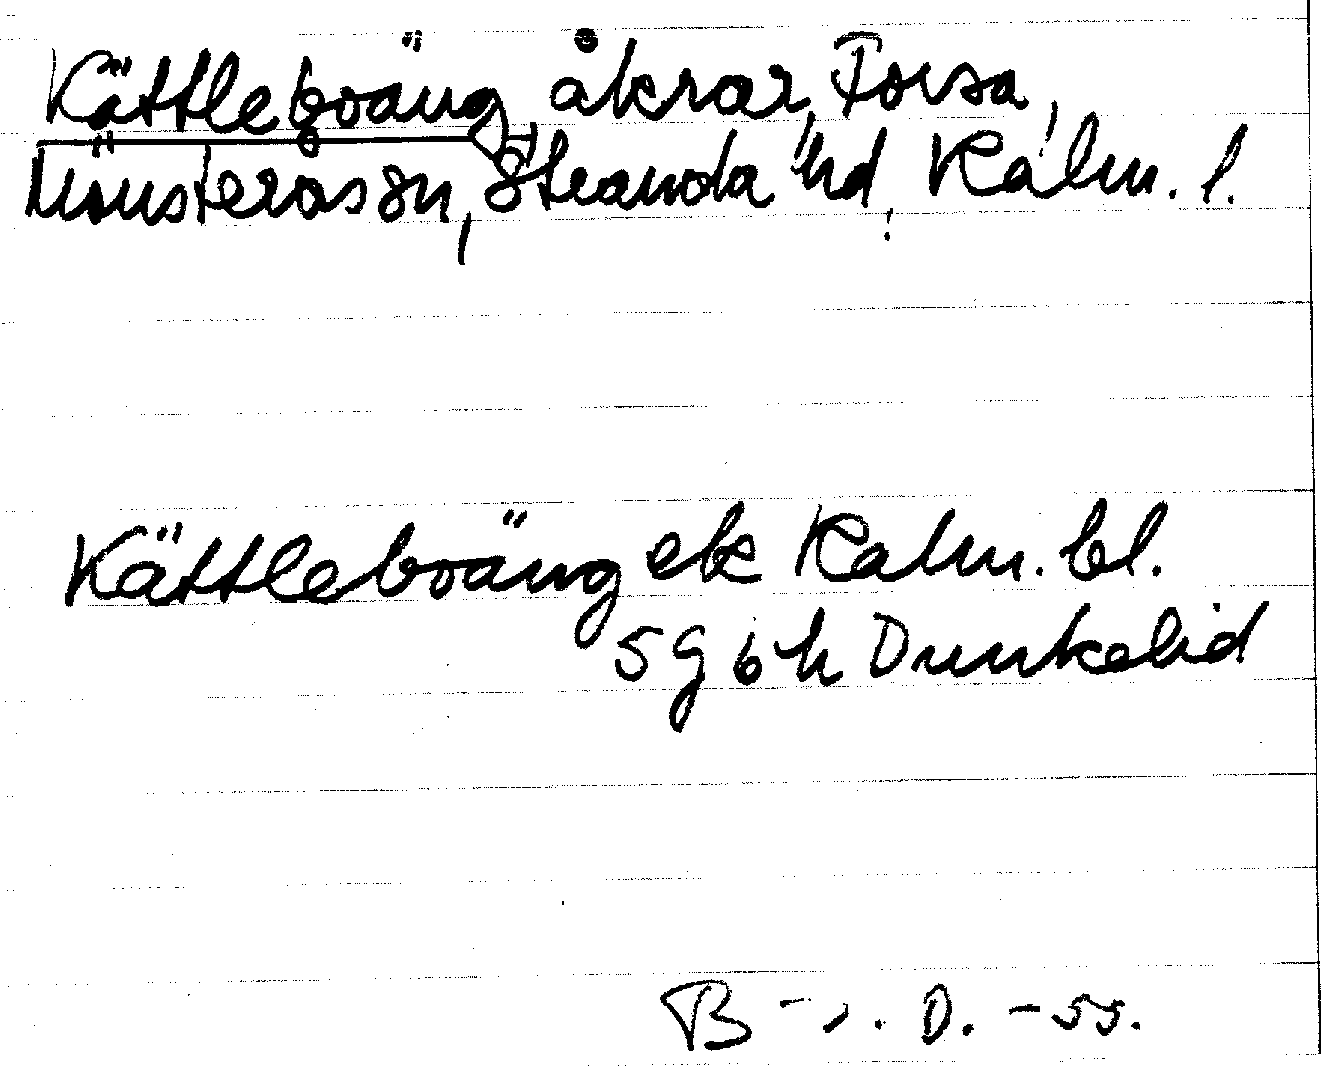 Kättleboäng, åkrar, Forsa,
Mönsterås sn, Stranda hd, Kalm. l.
Kättleboäng ek Kalm. bl.
5 g 6 h Dunkelid
B D. -55.